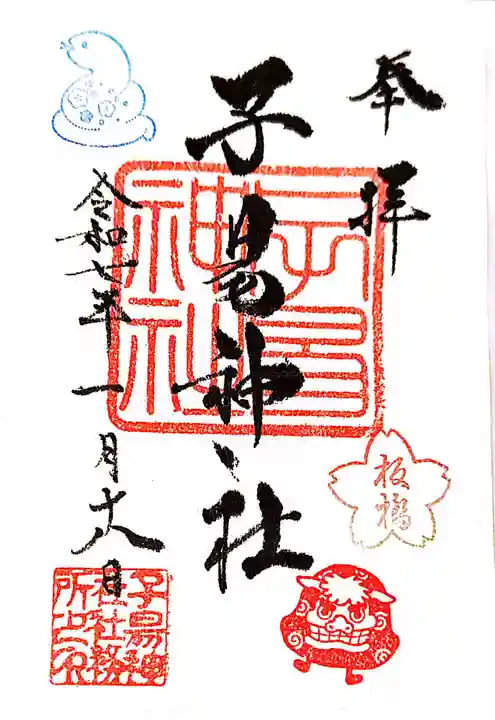 奉拝
子易神社
令和七年一月十八日
板橋
子易神社
子易神社社務所之印